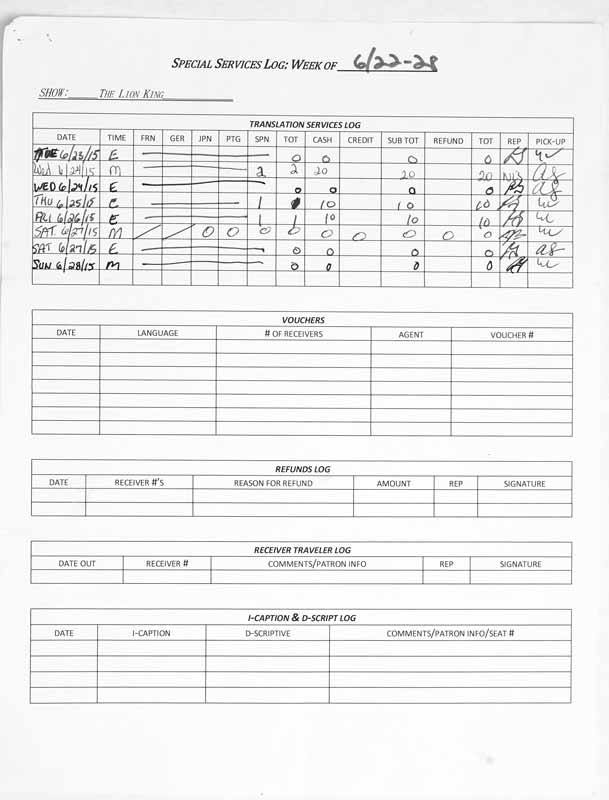 SPECIAL SERVICES LOG: WEEK OF 6/22-28
SHOW: THE LION KING
TRANSLATION SERVICES LOG
DATE TIME FRN GER JPN PTG SPN TOT CASH CREDIT SUB TOT REFUND TOT REP PICK-UP
TUE 6/23/15 E 0 0 0 0
Wed 6/24/15 M 2 2 20 20 20 NB as
WED 6/24/15 E 0 0 0 0 as
THU 6/25/15 E 1 1 10 10 10
FRI 6/26/15 E 1 1 10 10 10
SAT 6/27/15 M / / 0 0 0 0 0 0 0 0 0
SAT 6/27/15 E 0 0 0 0 as
SUN 6/28/15 M 0 0 0 0
VOUCHERS
DATE LANGUAGE # OF RECEIVERS AGENT VOUCHER #
REFUNDS LOG
DATE RECEIVER #'S REASON FOR REFUND AMOUNT REP SIGNATURE
RECEIVER TRAVELER LOG
DATE OUT RECEIVER # COMMENTS/PATRON INFO REP SIGNATURE
I-CAPTION & D-SCRIPT LOG
DATE I-CAPTION D-SCRIPTIVE COMMENTS/PATRON INFO/SEAT #